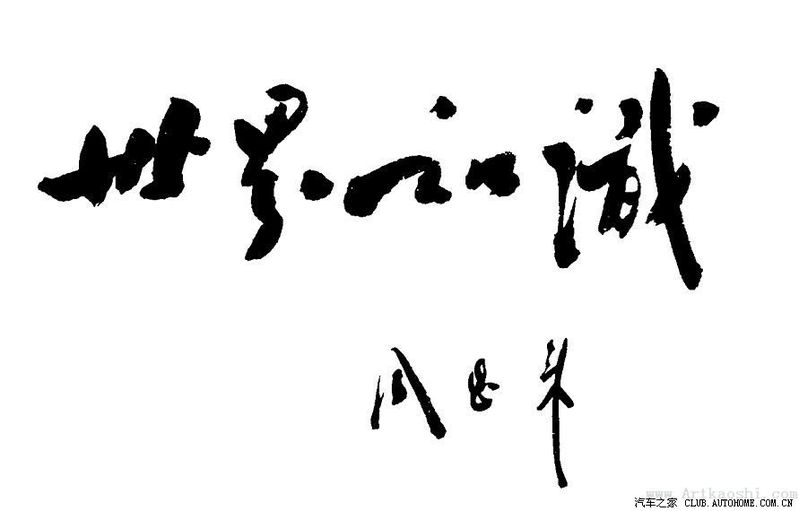 世界知識
周恩来
www.Artkaoshi.com
汽车之家 CLUB.AUTOHOME.COM.CN